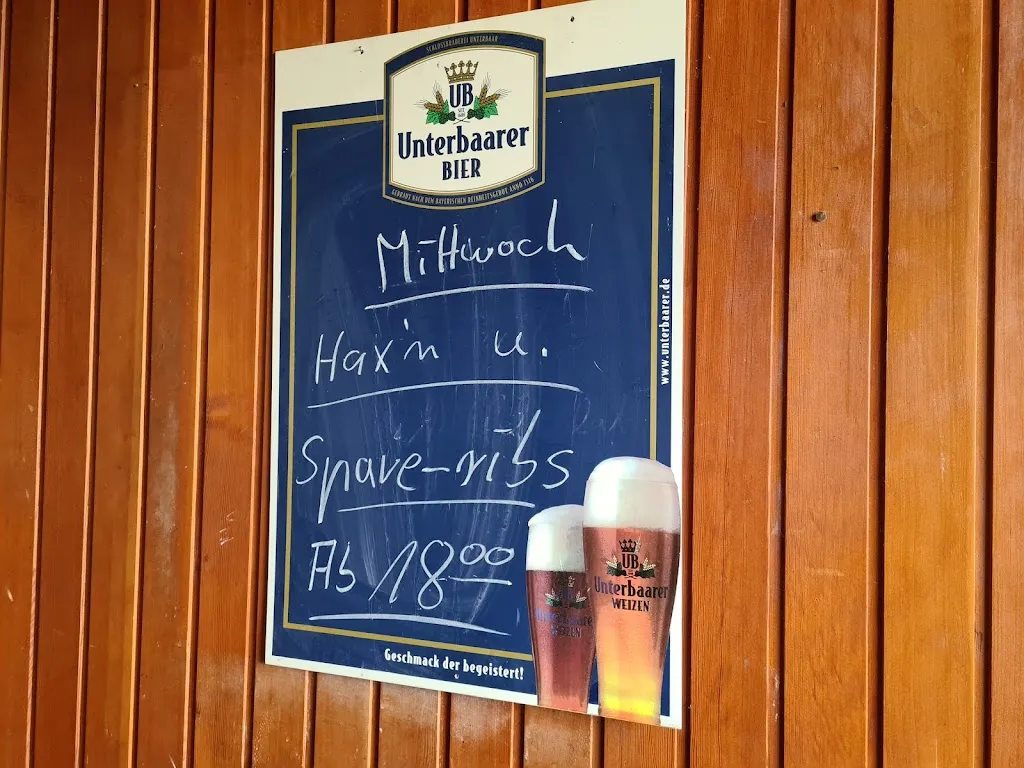 SCHLOSSBRAUEREI UNTERBAAR
UB
Unterbaarer
BIER
GEBRAUT NACH DEM BAYERISCHEN REINHEITSGEBOT ANNO 1516
Mittwoch
Hax'n u.
Spare-ribs
Ab 18 00
www.unterbaarer.de
UB
Unterbaarer
WEIZEN
Unterbaarer
WEIZEN
Geschmack der begeistert!